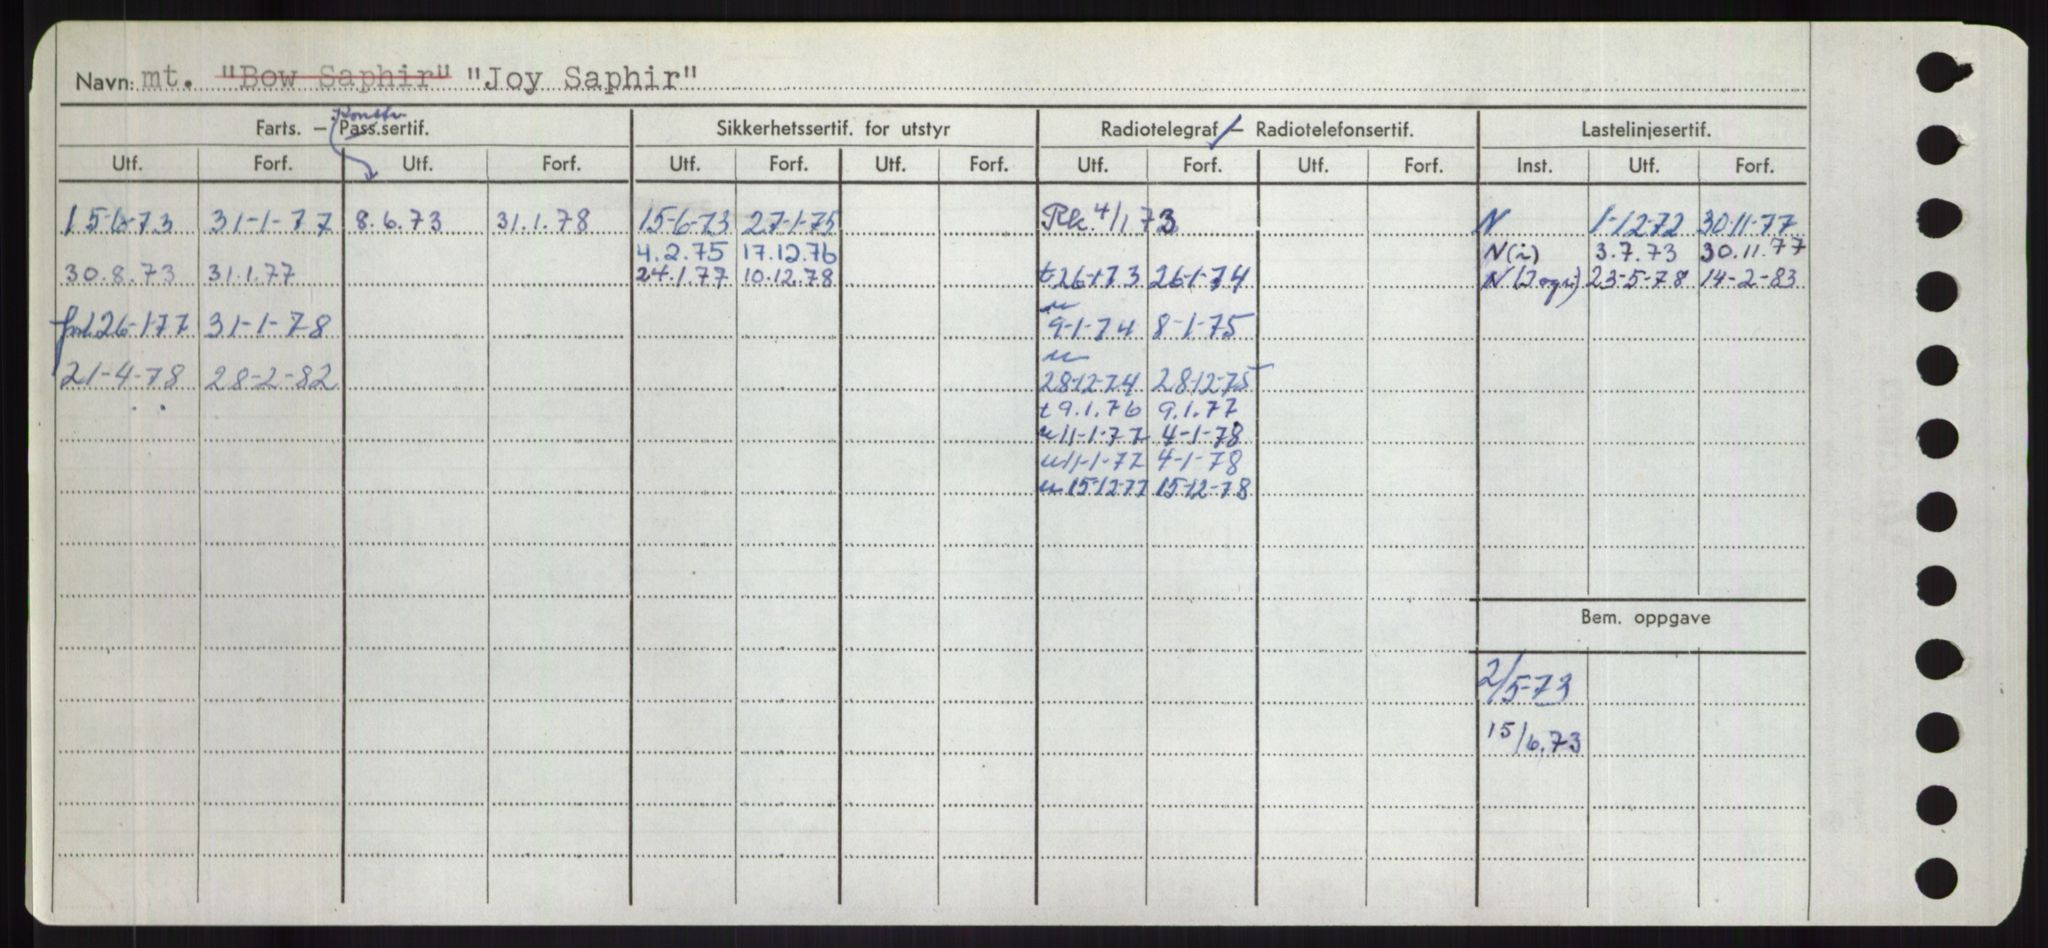 Navn: mt. "Bow Saphir" "Joy Saphir"
Konstr.
Farts. — Pass.sertif. Sikkerhetssertif. for utstyr Radiotelegraf — Radiotelefonsertif. Lastelinjesertif.
Utf. Forf. Utf. Forf. Utf. Forf. Utf. Forf. Utf. Forf. Utf. Forf. Inst. Utf. Forf.
15-6-73 31-1-77 8.6.73 31.1.78 15-6-73 27-1-75 Rk. 4/1 73 N 1-12-72 30-11-77
4.2.75 17.12.76 N(i) 3.7.73 30.11.77
30.8.73 31.1.77 24.1.77 10.12.78 t 26-1-73 26-1-74 N 23-5-78 14-2-83
u
26-1-77 31-1-78 9-1-74 8-1-75
u
21-4-78 28-2-82 28-12-74 28-12-75
t 9.1.76 9.1.77
u 11-1-77 4-1-78
u 11-1-77 4-1-78
u 15-12-77 15-12-78
Bem. oppgave
2/5-73
15/6.73